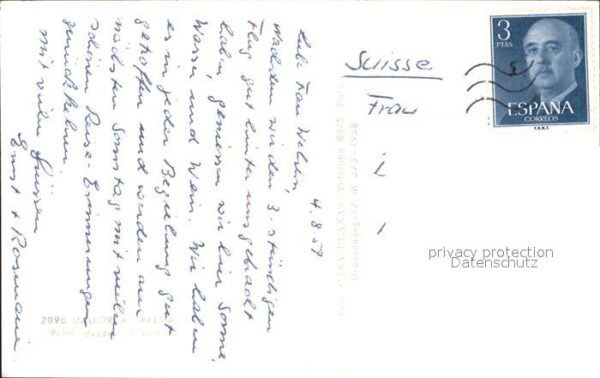 4.8.59
Liebe Frau
Nachdem wir den 3-stündigen
Flug gut hinter uns gebracht
haben, geniessen wir hier Sonne,
Wasser und Wein. Wir haben
es in jeder Beziehung gut
getroffen und werden am
nächsten Sonntag mit vielen
schönen Reise-Erinnerungen
zurückkehren.
Mit vielen Grüssen
Ernst + Rosmarie
Suisse
Frau
3
PTAS
ESPAÑA
CORREOS
F.N.M.T.
privacy protection
Datenschutz
2096 MALLORCA - PALMA